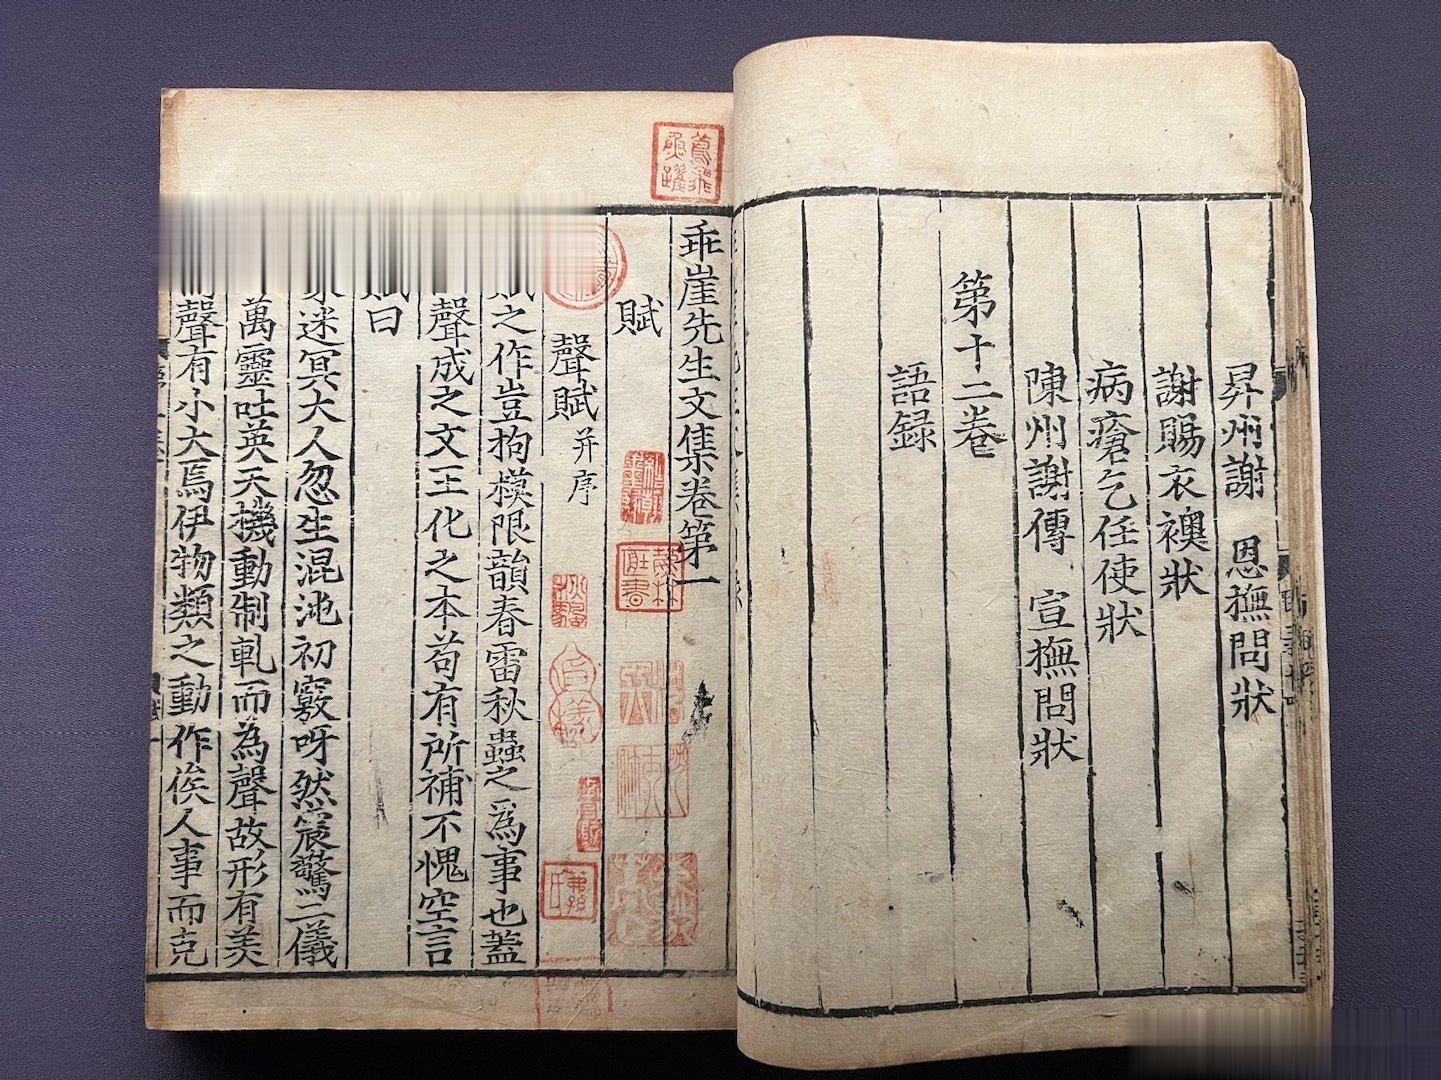 昇州謝 恩撫問狀
謝賜衣襖狀
病瘡乞任使狀
陳州謝傳 宣撫問狀
第十二卷
語録
乖崖先生文集卷第一
賦
聲賦并序
之作豈拘模限韻春雷秋蟲之爲事也蓋
聲成之文王化之本苟有所補不愧空言
曰
迷冥大人忽生混沌初竅呀然震驚二儀
萬靈吐英天機動制軋而為聲故形有美
聲有小大焉伊物類之動作俟人事而克